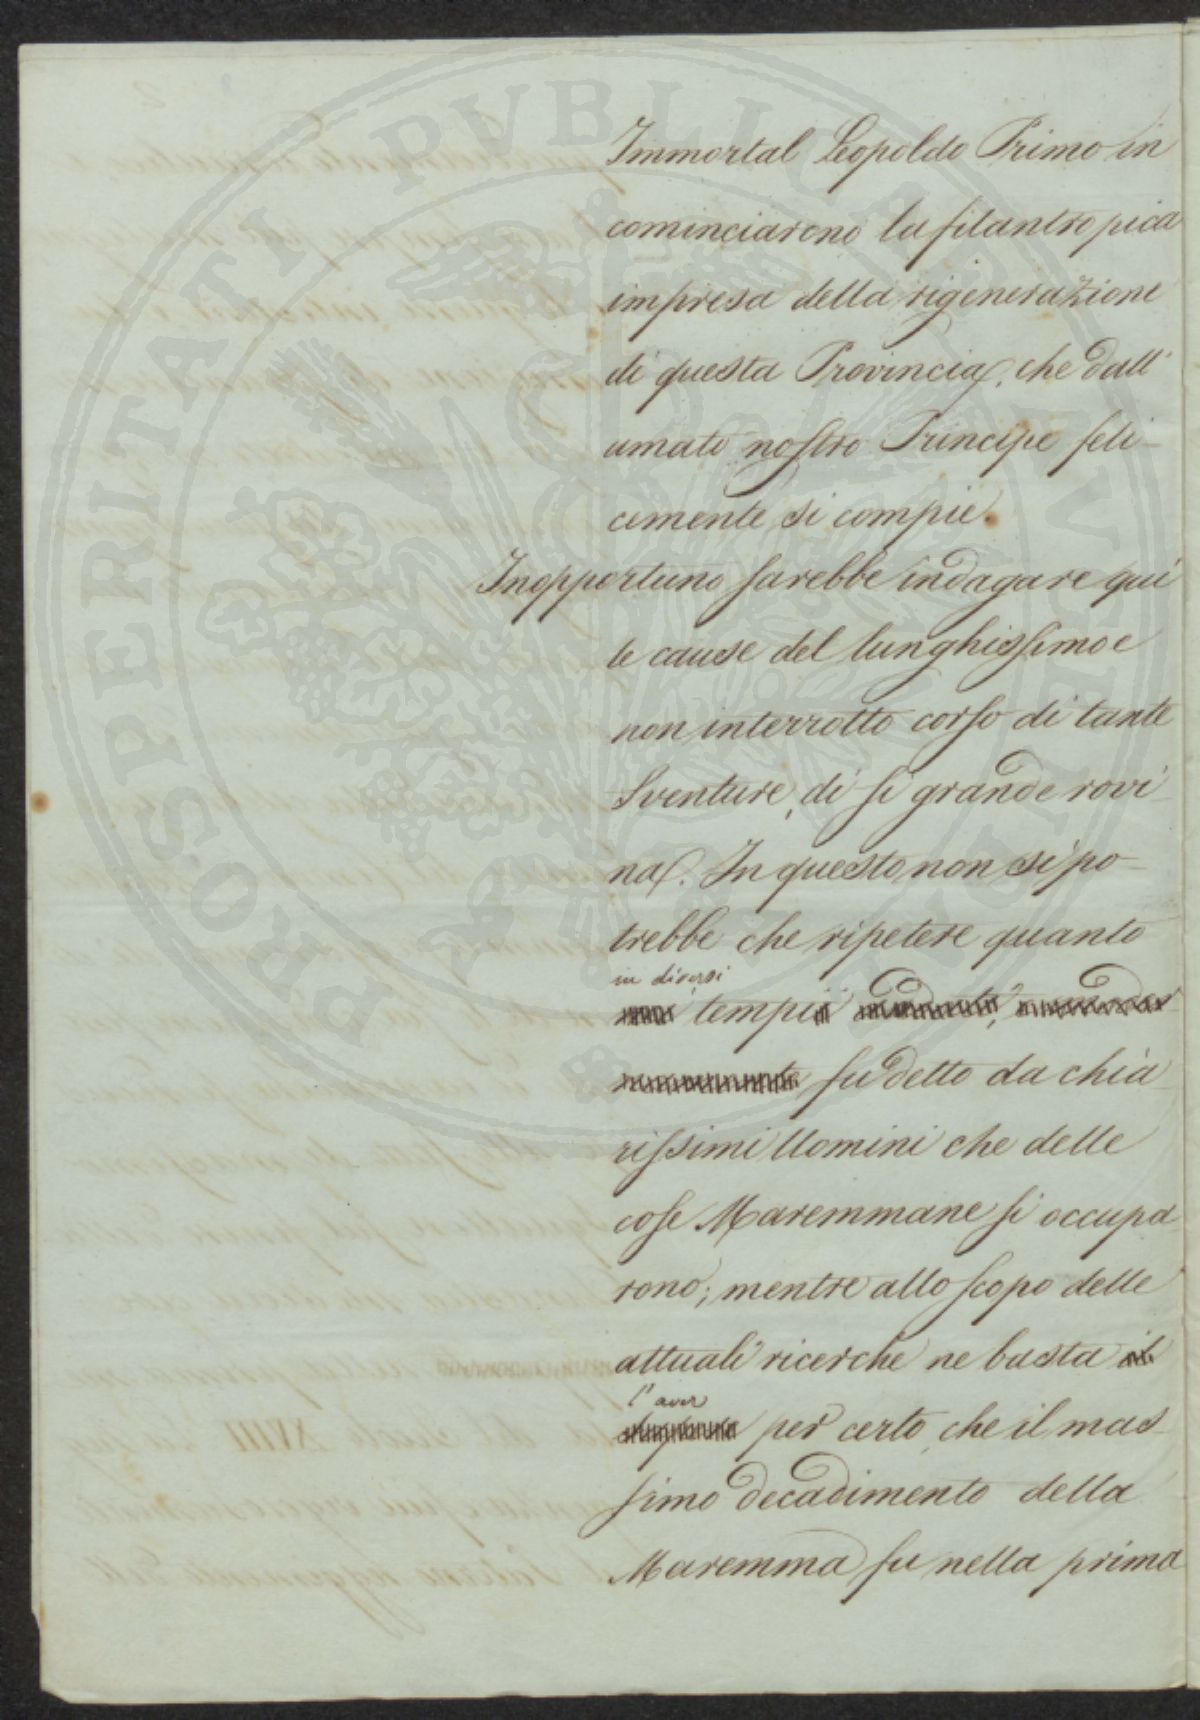 Immortal Leopoldo Primo in
cominciarono la filantropica
impresa della rigenerazione
di questa Provincia, che dall'
amato nostro Principe feli-
cemente si compie.
Inopportuno sarebbe indagare quì
le cause del lunghissimo e
non interrotto corso di tante
Sventure, di sì grande rovi-
na. In questo non si po-
trebbe che ripetere quanto
in diversi
tempi
fu detto da chia
rissimi Uomini che delle
cose Maremmane si occupa
rono; mentre allo scopo delle
attuali ricerche ne basta il
l'aver
per certo, che il mas-
simo decadimento della
Maremma fu nella prima
PROSPERITATI PVBLICAE
XVIII